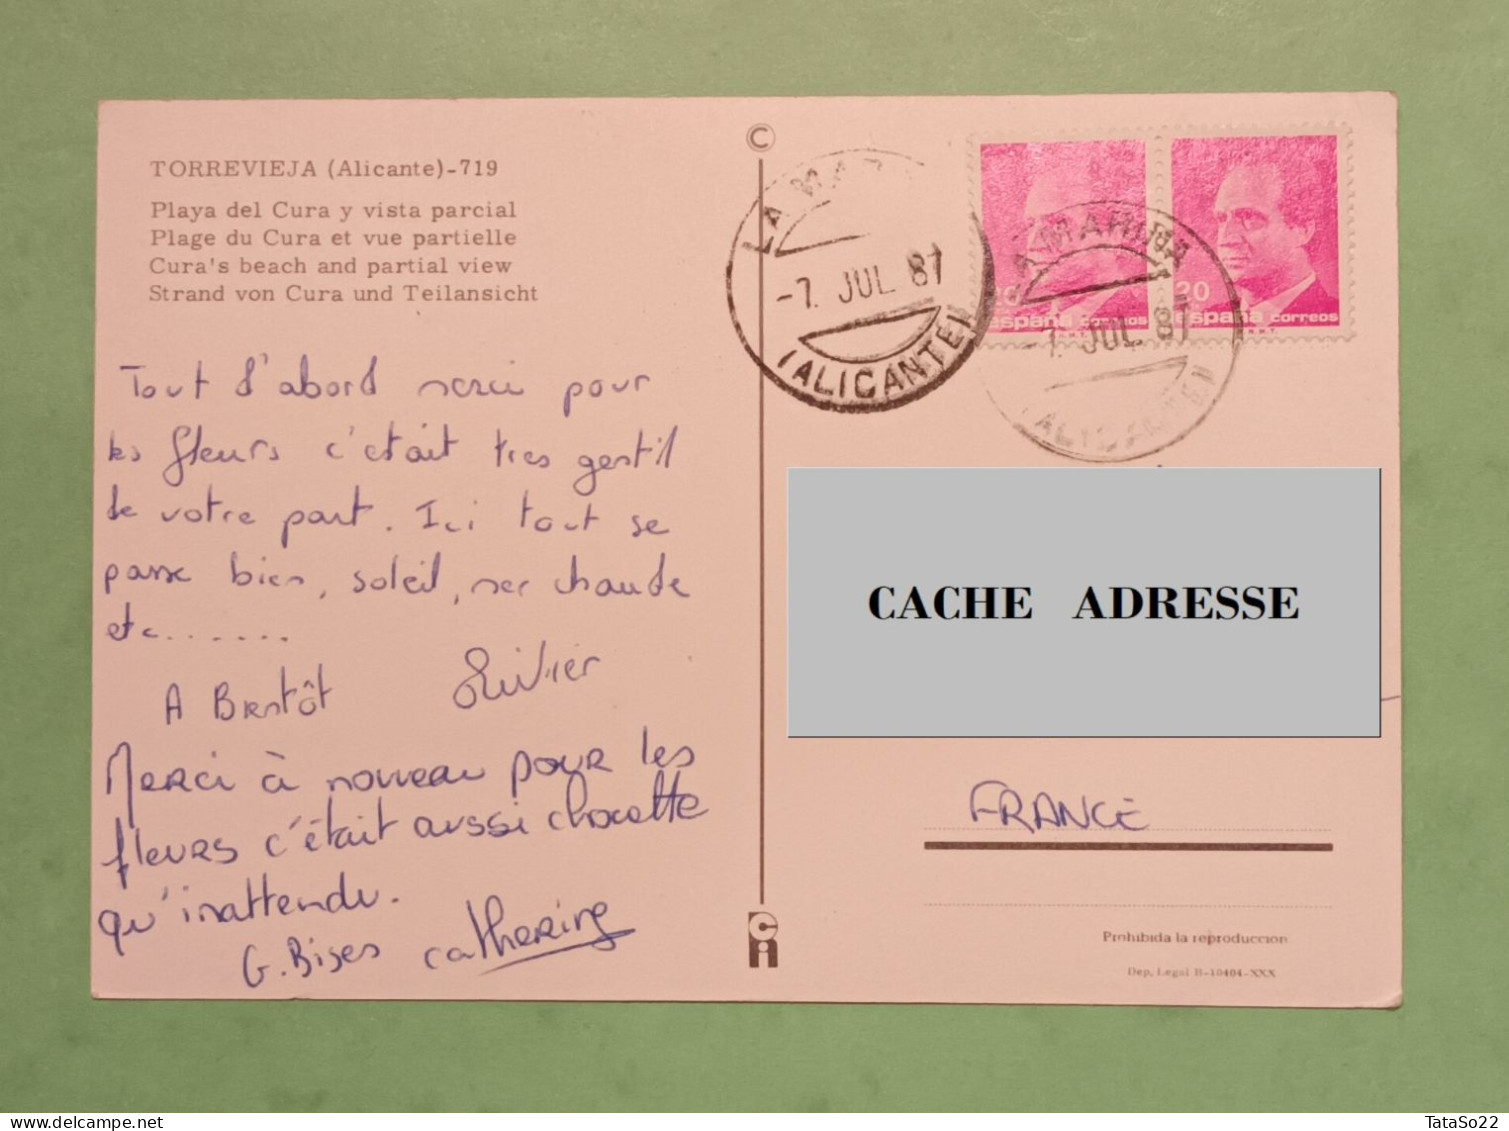 TORREVIEJA (Alicante)-719
Playa del Cura y vista parcial
Plage du Cura et vue partielle
Cura's beach and partial view
Strand von Cura und Teilansicht
Tout d'abord merci pour
les fleurs c'était très gentil
de votre part. Ici tout se
passe bien, soleil, mer chaude
etc.......
A Bientôt Olivier
Merci à nouveau pour les
fleurs c'était aussi chouette
qu'inattendu.
G. Bises Catherine
C
Ci
LA MAR
-7. JUL 87
(ALICANTE)
20
españa correos
20
españa correos
F.N.M.T.
LA MARINA
-7. JUL 87
(ALICANTE)
CACHE ADRESSE
FRANCE
Prohibida la reproduccion
Dep. Legal B-10404-XXX
TataSo22